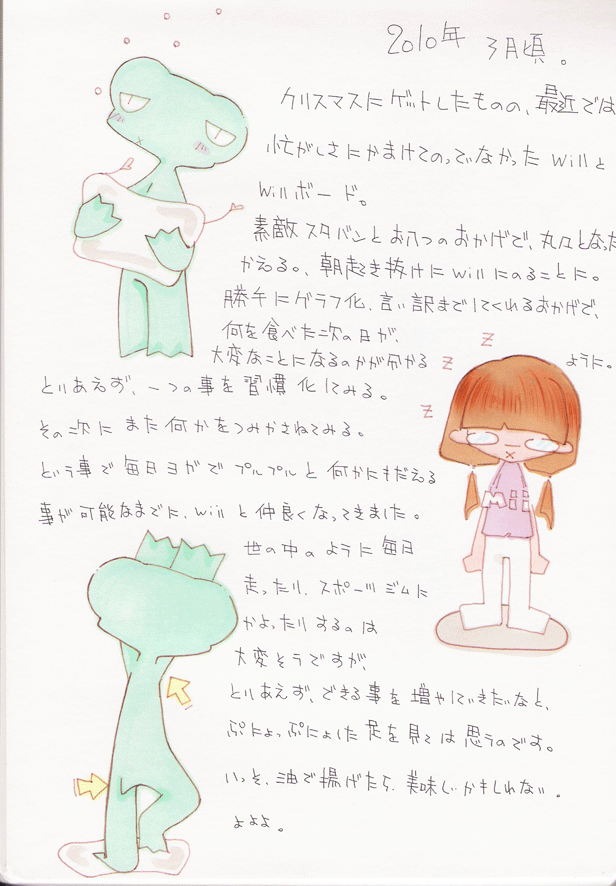 2010年 3月頃。
クリスマスにゲットしたものの、最近では
忙がしさにかまけてのっていなかった Willと
Willボード。
素敵スタバンとおやつのおかげで、丸々となった
かえる。、朝起き抜けにwillにのることに。
勝手にグラフ化、言い訳までしてくれるおかげで、
何を食べた次の日が、
大変なことになるのかが分かる ように。
z
z
z
とりあえず、一つの事を習慣化してみる。
その次にまた何かをつみかさねてみる。
という事で毎日ヨガでプルプルと何かにもだえる
事が可能なまでに、willと仲良くなってきました。
Mii
世の中のように毎日
走ったり、スポーツジムに
かよったりするのは
大変そうですが、
とりあえず、できる事を増やしていきたいなと、
ぷにょっぷにょした足を見ては思うのです。
いっそ、油で揚げたら、美味しいかもしれない。
よよよ。